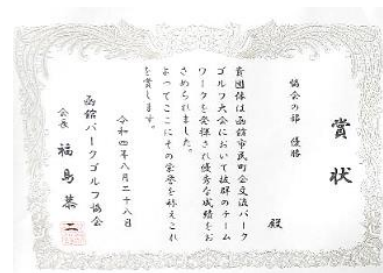 賞状
協会の部 優勝
殿
貴団体は函館市民町会交流パーク
ゴルフ大会において抜群のチーム
ワークを発揮され優秀な成績をお
さめられました
よってここにその栄誉を称えこれ
を賞します。
令和四年八月二十八日
函館パークゴルフ協会
会長 福島恭二